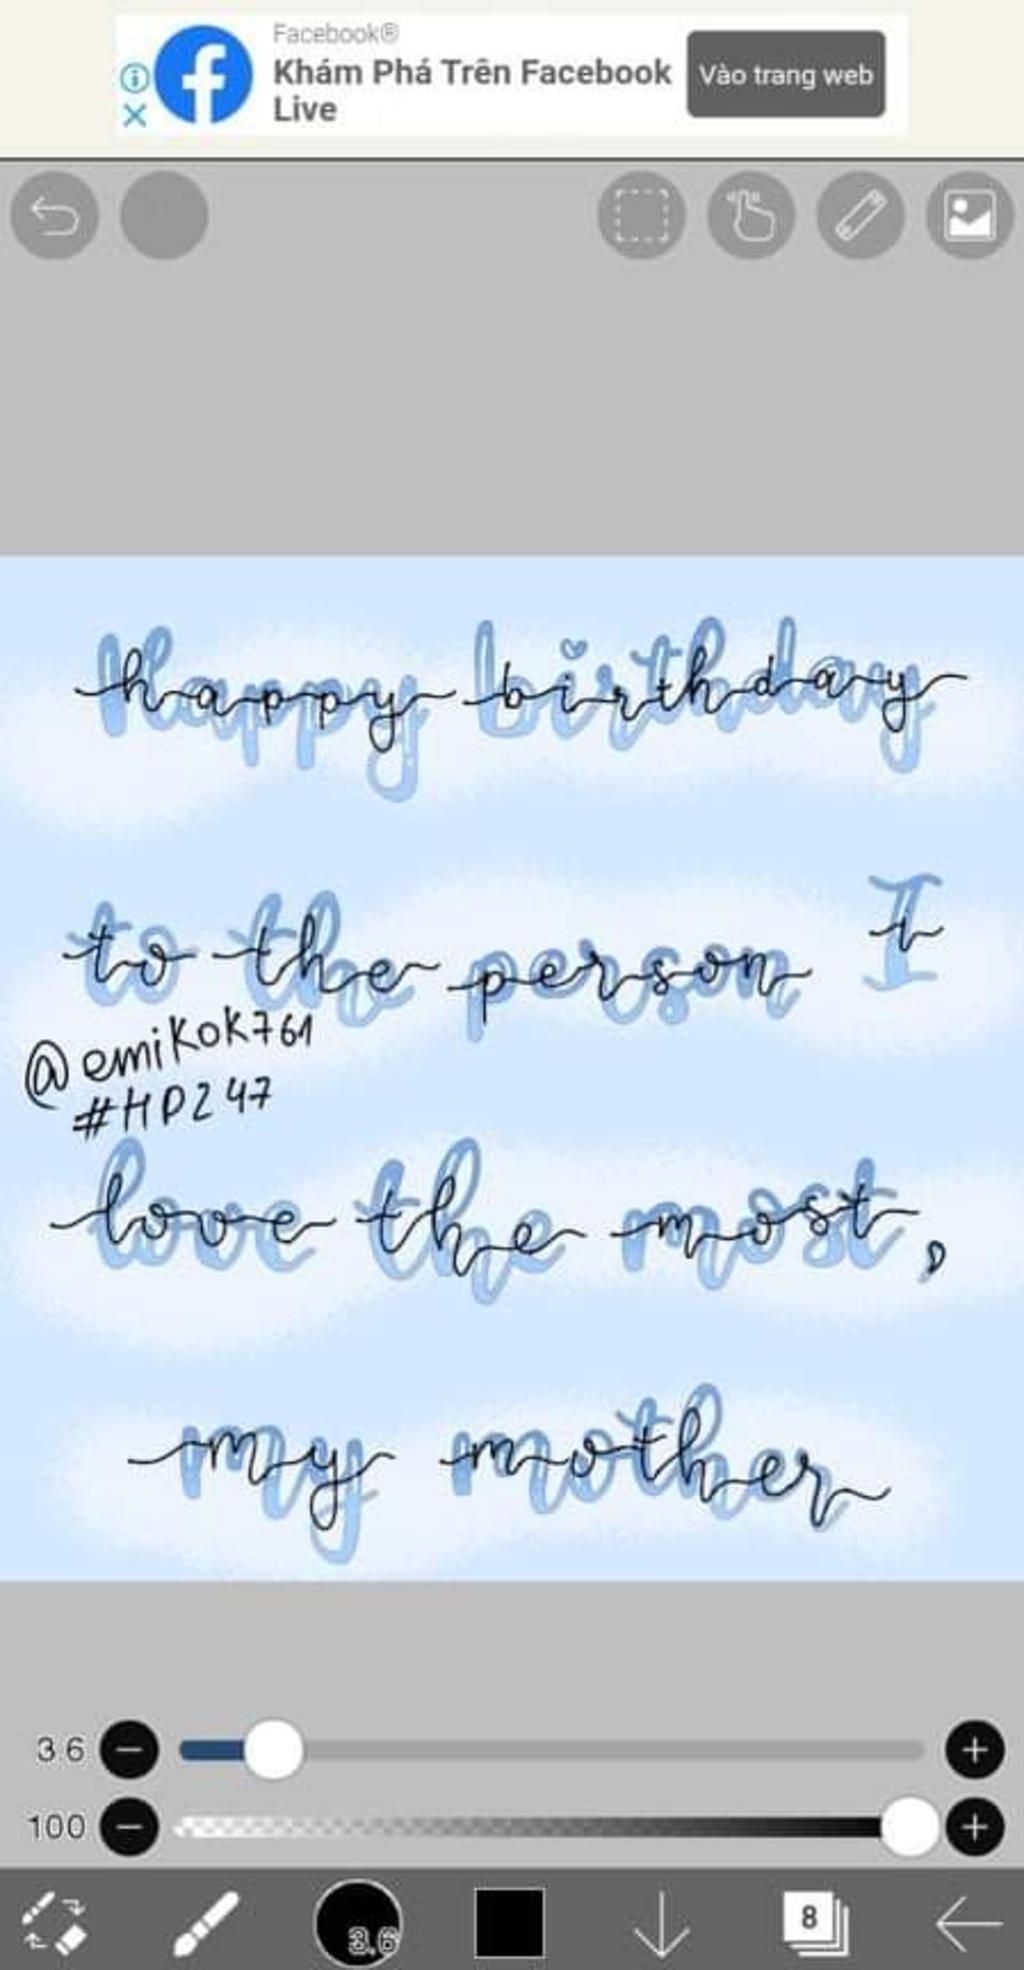 Facebook®
Khám Phá Trên Facebook
Live
Vào trang web
happy birthday
to the person I
@emikok761
#HP247
love the most,
my mother
3.6
100
3.6
8